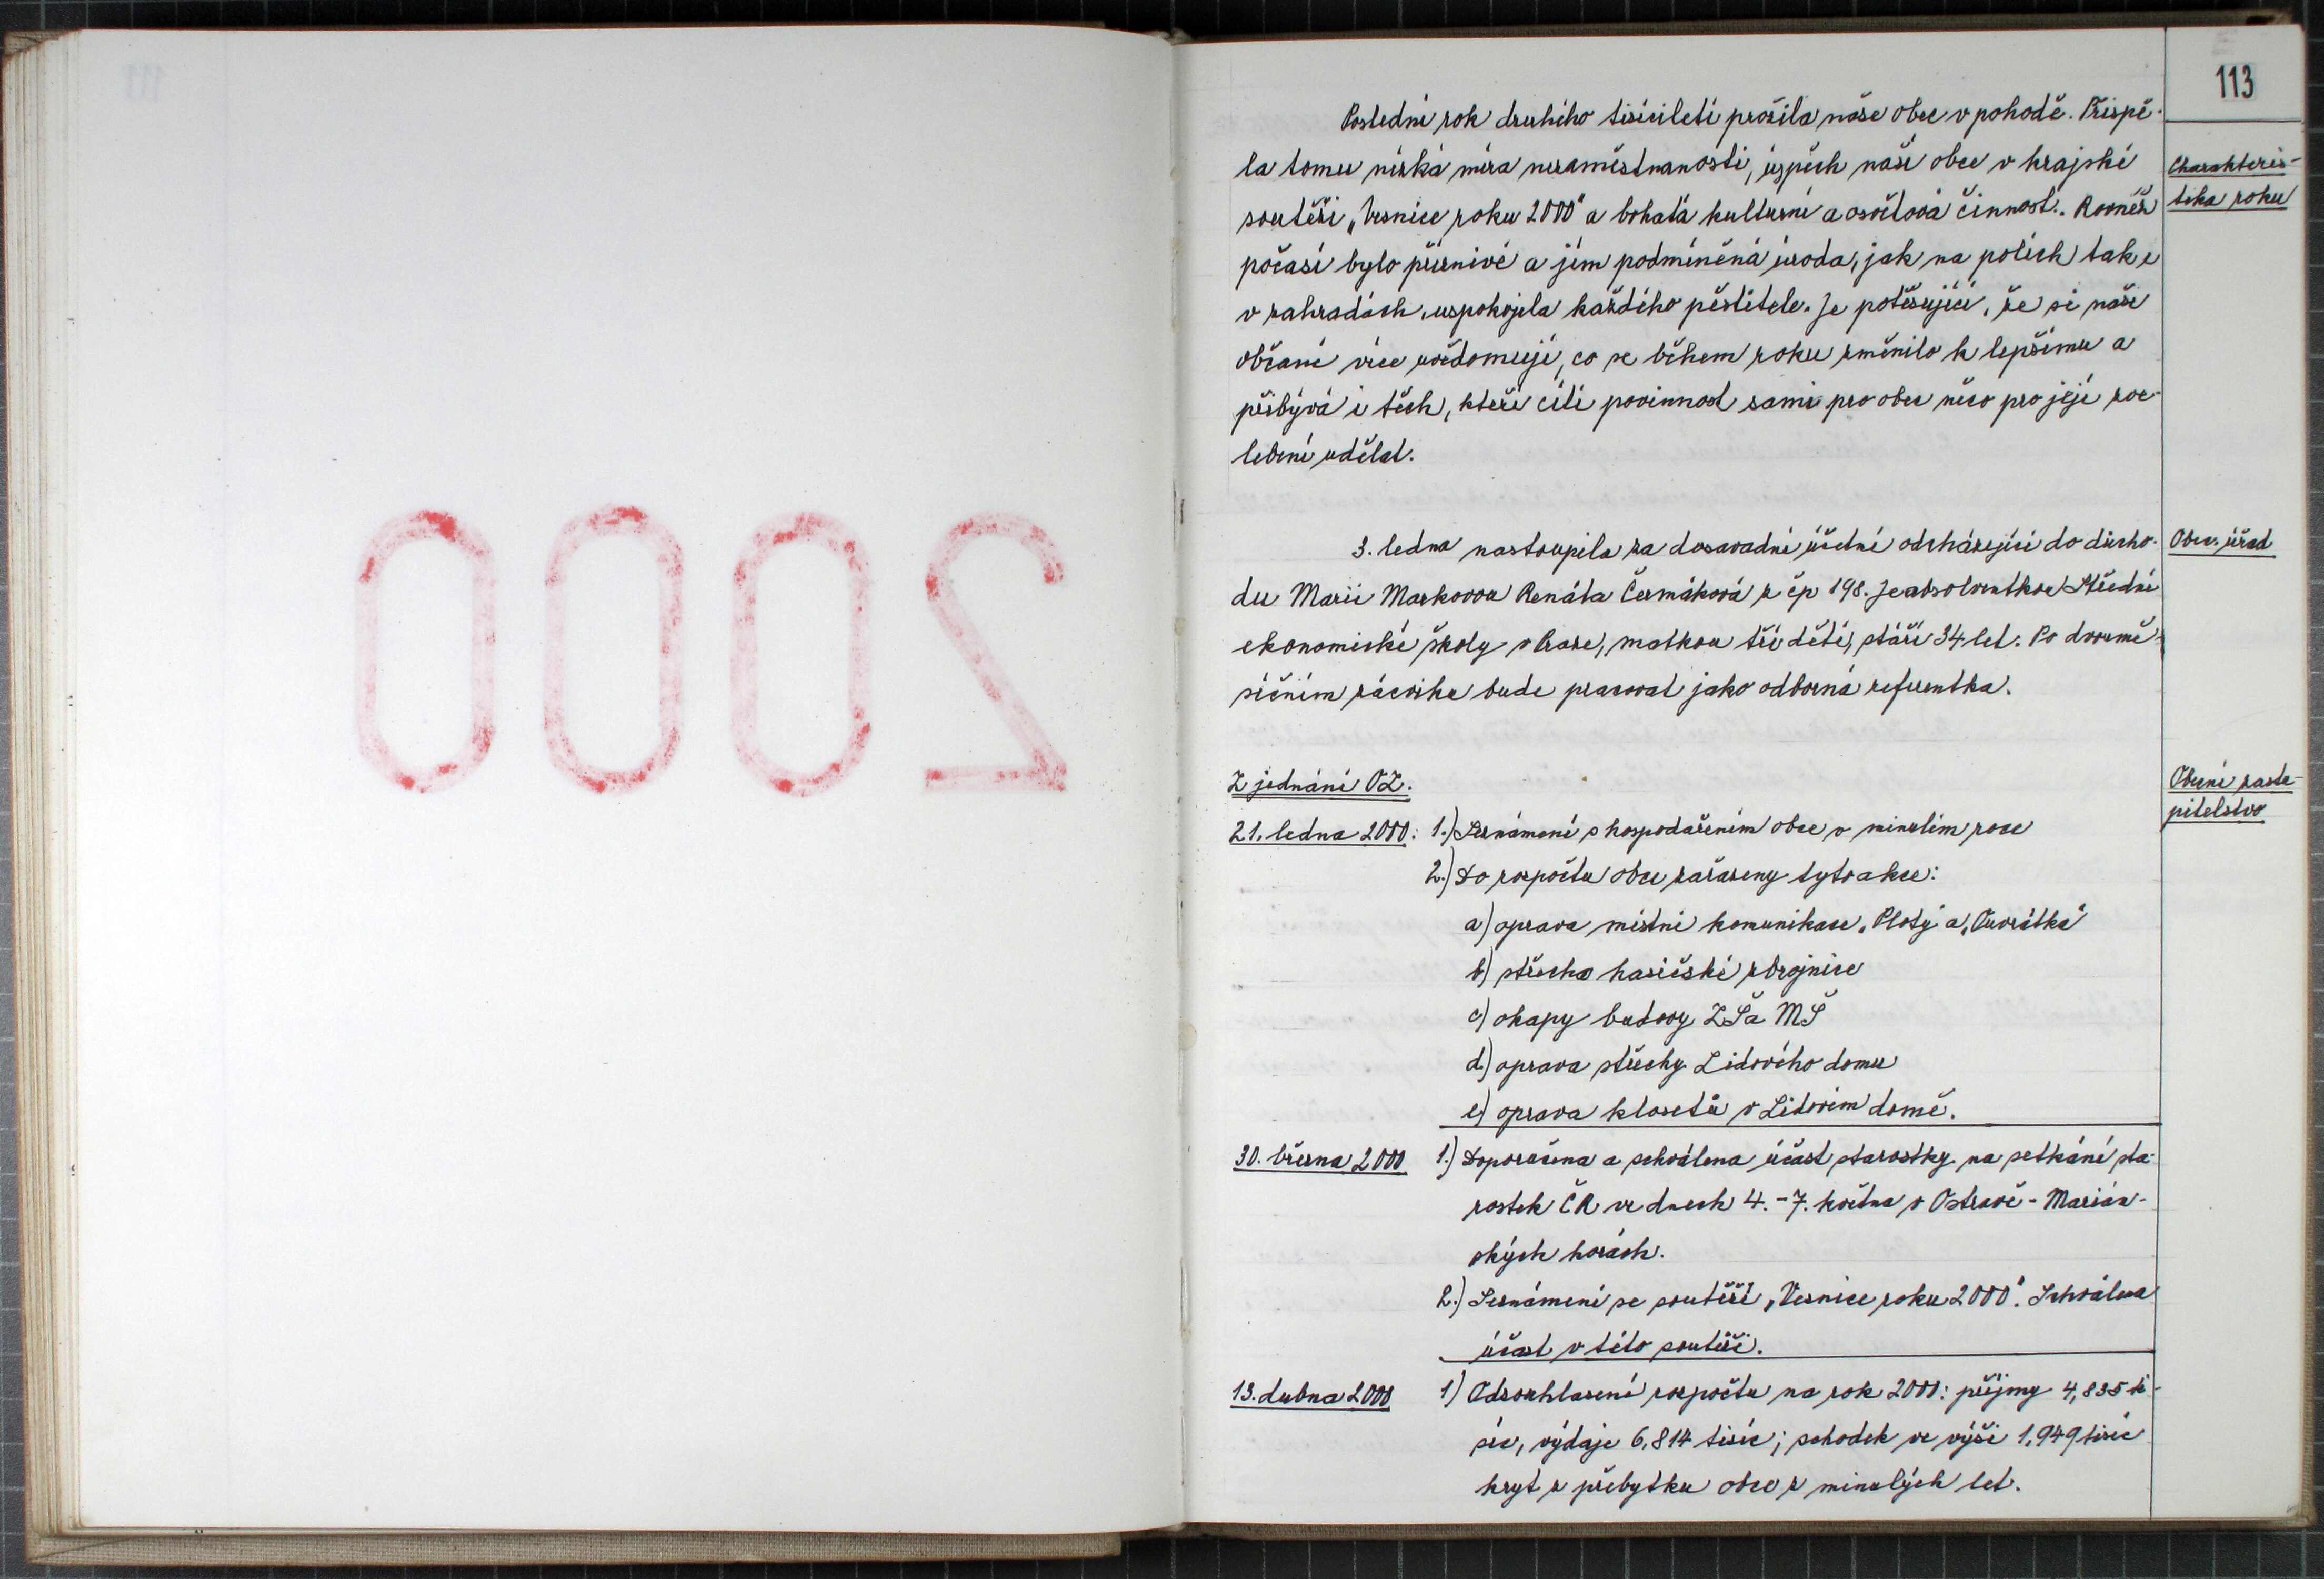 113
Poslední rok druhého tisíciletí prožila naše obec v pohodě. Přispě-
la tomu nízká míra nezaměstnanosti, úspěch naší obce v krajské
soutěži „Vesnice roku 2000“ a bohatá kulturní a osvětová činnost. Rovněž
počasí bylo příznivé a jím podmíněná úroda, jak na polích tak i
v zahradách, uspokojila každého pěstitele. Je potěšující, že si naši
občané více uvědomují, co se během roku změnilo k lepšímu a
přibývá i těch, kteří cítí povinnost sami pro obec něco pro její zve-
lebení udělat.
Charakteris-
tika roku
3. ledna nastoupila za dosavadní účetní odcházející do důcho-
du Marii Markovou Renáta Čermáková z čp 198. Je absolventkou Střední
ekonomické školy, matkou tří dětí, stáří 34 let. Po dvoumě-
síčním zácviku bude pracovat jako odborná referentka.
Obec. úřad
Z jednání OZ.
Obecní zastu-
pitelstvo
21. ledna 2000: 1.) Seznámení s hospodařením obce v minulém roce
2.) Do rozpočtu obce zařazeny tyto akce:
a) oprava místní komunikace „Ploty“ a „Ouvrátka“
b) střecha hasičské zbrojnice
c) okapy budovy ZŠ a MŠ
d) oprava střechy Lidového domu
e) oprava klosetů v Lidovém domě.
30. března 2000 1.) Doporučena a schválena účast starostky na setkání sta-
rostek ČR ve dnech 4.-7. května v Ostravě - Marián-
ských horách.
2.) Seznámení se soutěží „Vesnice roku 2000“. Schválena
účast v této soutěži.
13. dubna 2000 1) Odsouhlasení rozpočtu na rok 2000: příjmy 4,835 ti-
síc, výdaje 6,814 tisíc; schodek ve výši 1,949 tisíc
kryt z přebytku obce z minulých let.